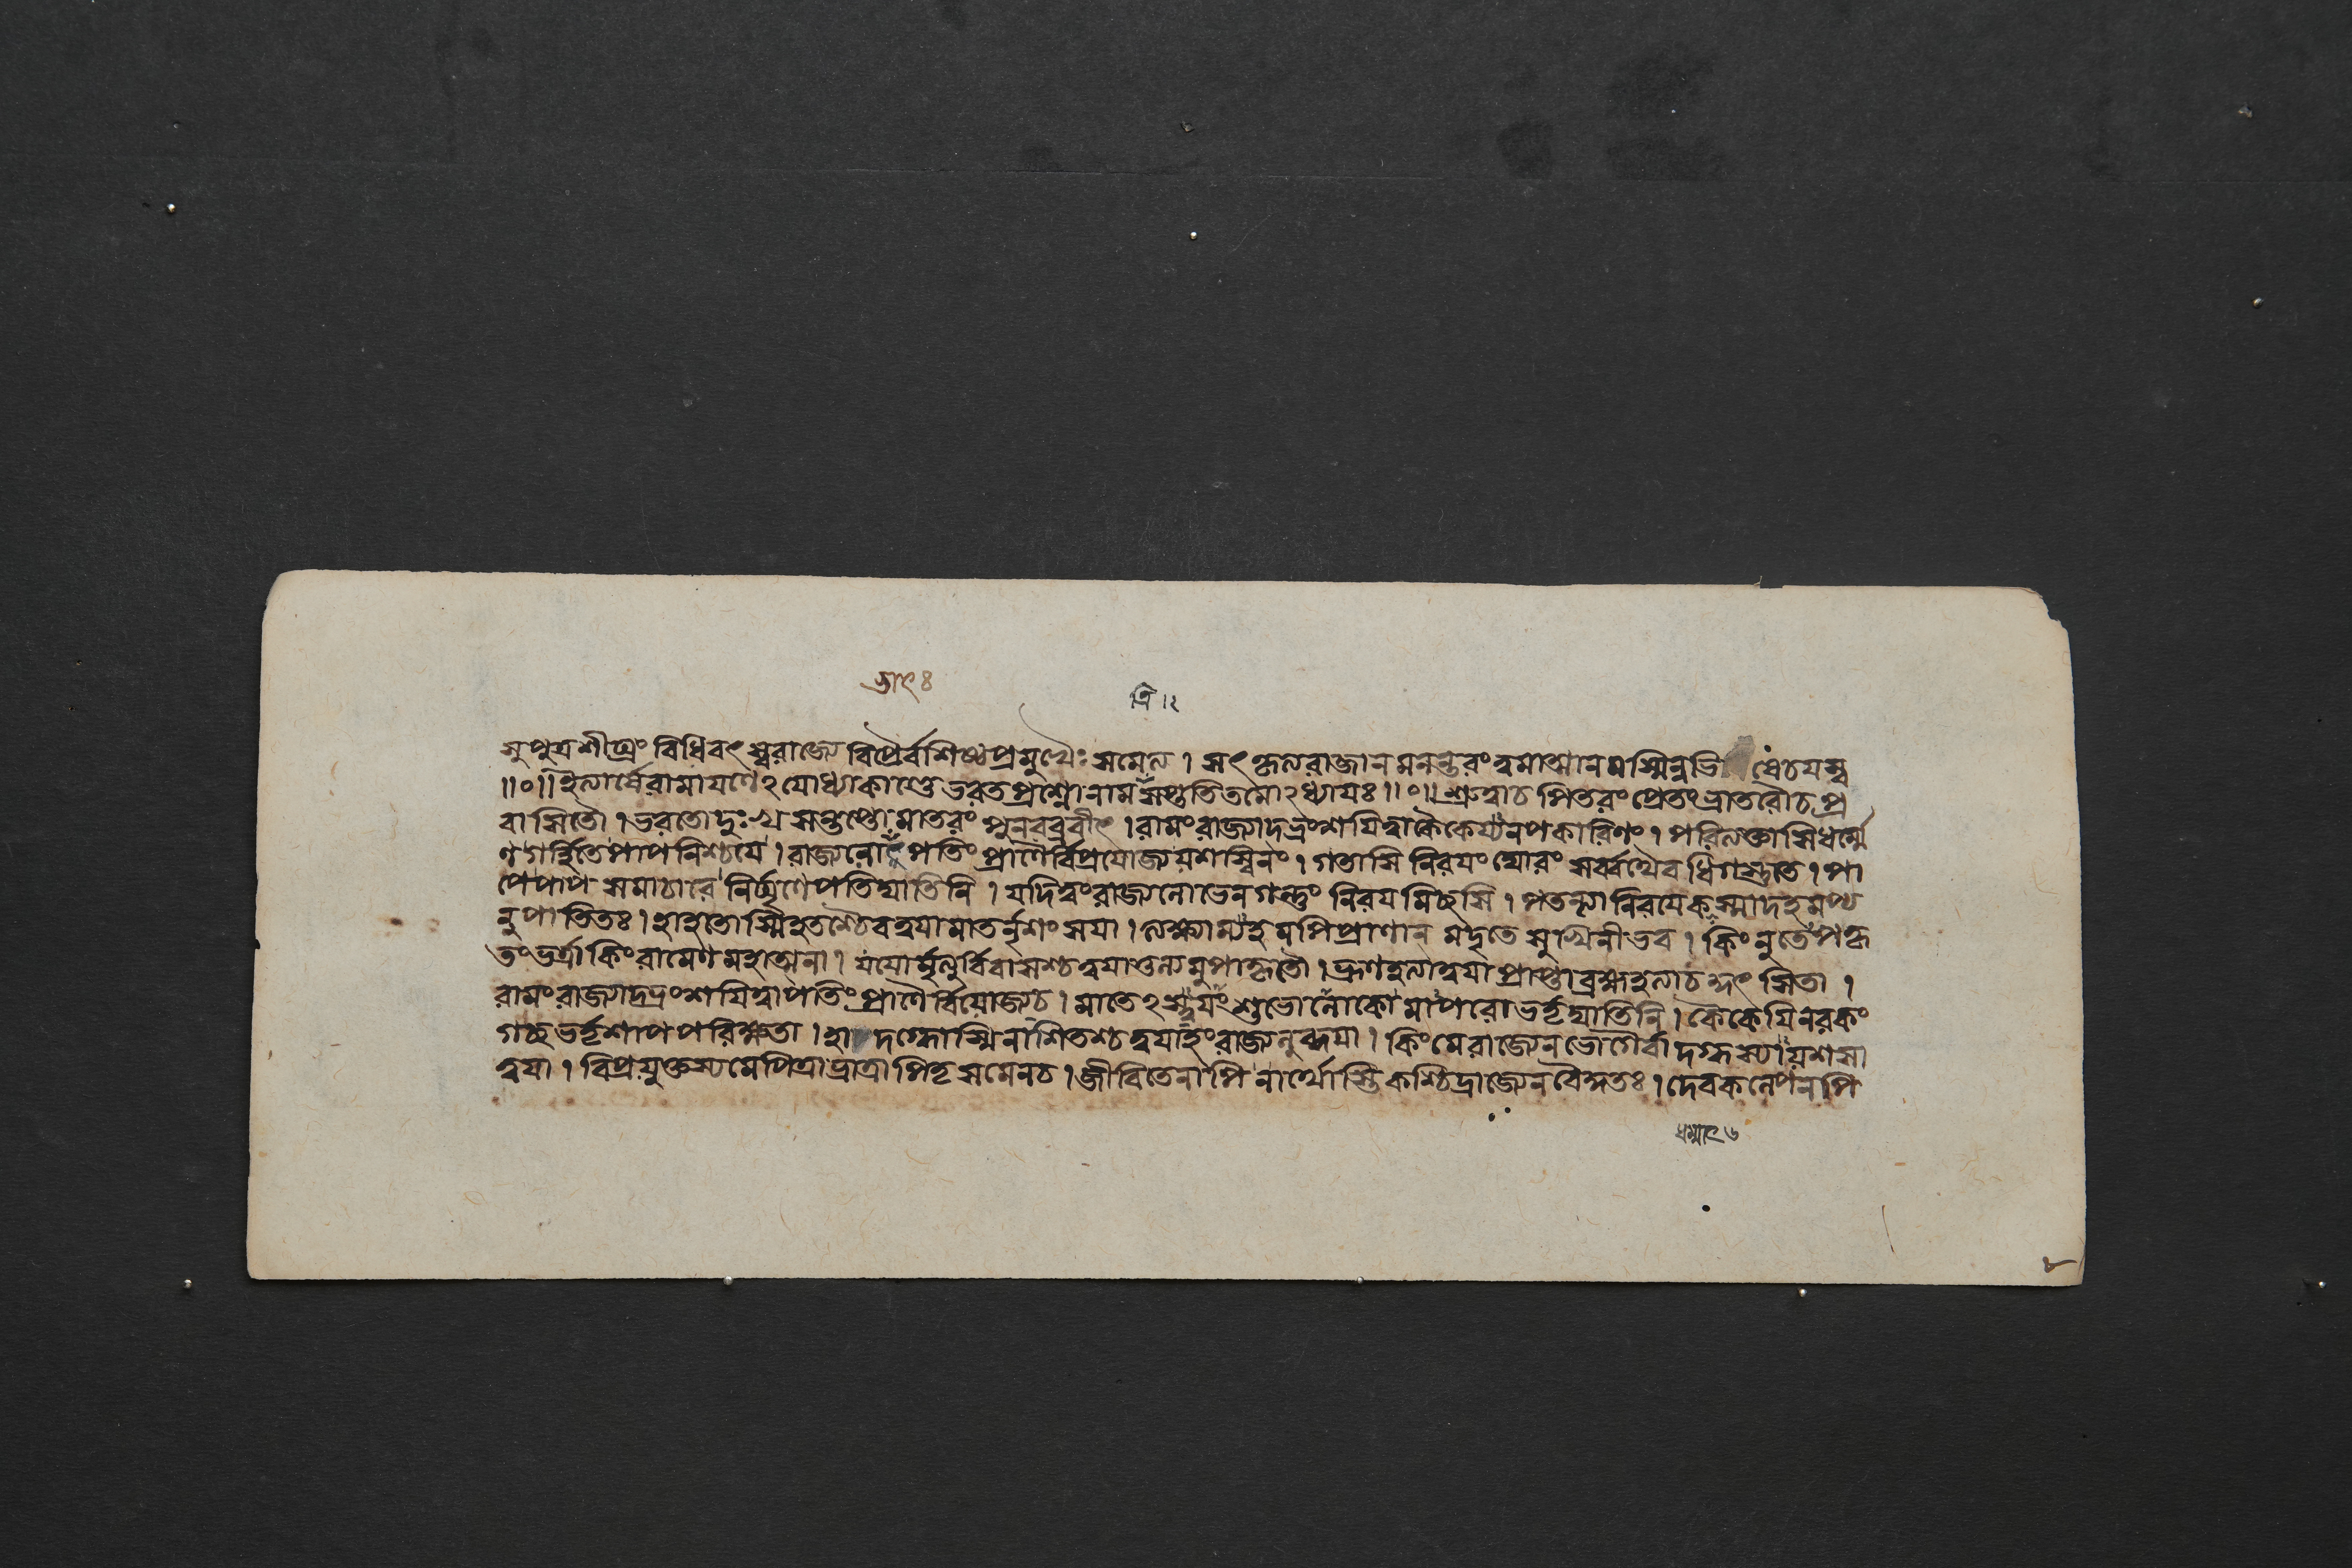 त्रि ।२
সুপুত্রশীঘ্রং বিধিবৎ স্বরাজ্যে বিপ্রৈর্বশিষ্ঠপ্রমুখৈঃ সমেত্য । সৎকৃত্যরাজানমনন্তরংত্বমাত্মানমস্মিন্নভি ষেচযস্ব
॥০॥ইত্যার্ষেরামাযণেঽযোধ্যাকাণ্ডেভরতপ্রশ্নোনামসপ্ততিতমোঽধ্যাযঃ॥০॥শ্রুত্বাচপিতরংপ্রেতংভ্রাতরৌচপ্র
বাসিতৌ ।ভরতোদুঃখসন্তপ্তোমাতরং পুনরব্রবীৎ ।রামংরাজ্যাদ্ভ্রংশযিত্বাকৈকেয্যনপকারিণং । পরিত্যক্তাসিধর্ম্মে
ণগর্হিতেপাপনিশ্চযে ।রাজ্যলোভাৎপতিং প্রাণৈর্বিপ্রযোজ্যযশস্বিনং । গতাসি নিরযংঘোরং সর্ব্বথৈবধিগস্তুতে । পা
পেপাপসমাচারে নির্ঘৃণেপতিঘাতিনি । যদিত্বংরাজ্যলোভেনগন্তুং নিরযমিচ্ছসি । পতন্ত্যা নিরযেকস্মাদহমপ্য
নুপাতিতঃ ।হাহতোস্মিহতশ্চৈবত্বযামাতর্নৃশংসযা । ত্যক্ষ্যাম্যহমপিপ্রাণান্ মদৃতেসুখিনীভব । কিংনুতেঽপকৃ
তংভর্ত্রাকিংরামেণমহাত্মনা । যযোর্মৃত্যুর্বিবাসশ্চত্বযাতুল্যমুপাহৃতৌ । ভ্রূণহত্যাত্বযাপ্রাপ্তাব্রহ্মহত্যাচ সিতা ।
রামংরাজ্যাদ্ভ্রংশযিত্বাপতিংপ্রাণৈর্বিযোজ্যচ । মাতেঽস্ত্বযংশুভোলোকোমাপরোভর্তৃঘাতিনি । কৈকেযিনরকং
গচ্ছভর্তৃশাপপরিক্ষতা । হা দগ্ধোস্মিনাশিতশ্চত্বযাহংরাজ্যলুব্ধযা । কিংমেরাজ্যেনভোগৈর্বাদগ্ধস্যাযশসা
ত্বযা । বিপ্রযুক্তস্যমেপিত্রাভ্রাত্রাপিতৃসমেনচ ।জীবিতেনাপিনার্থোস্তিকশ্চিদ্রাজ্যেনবৈক্ষতঃ ।দেবকল্পেনপি